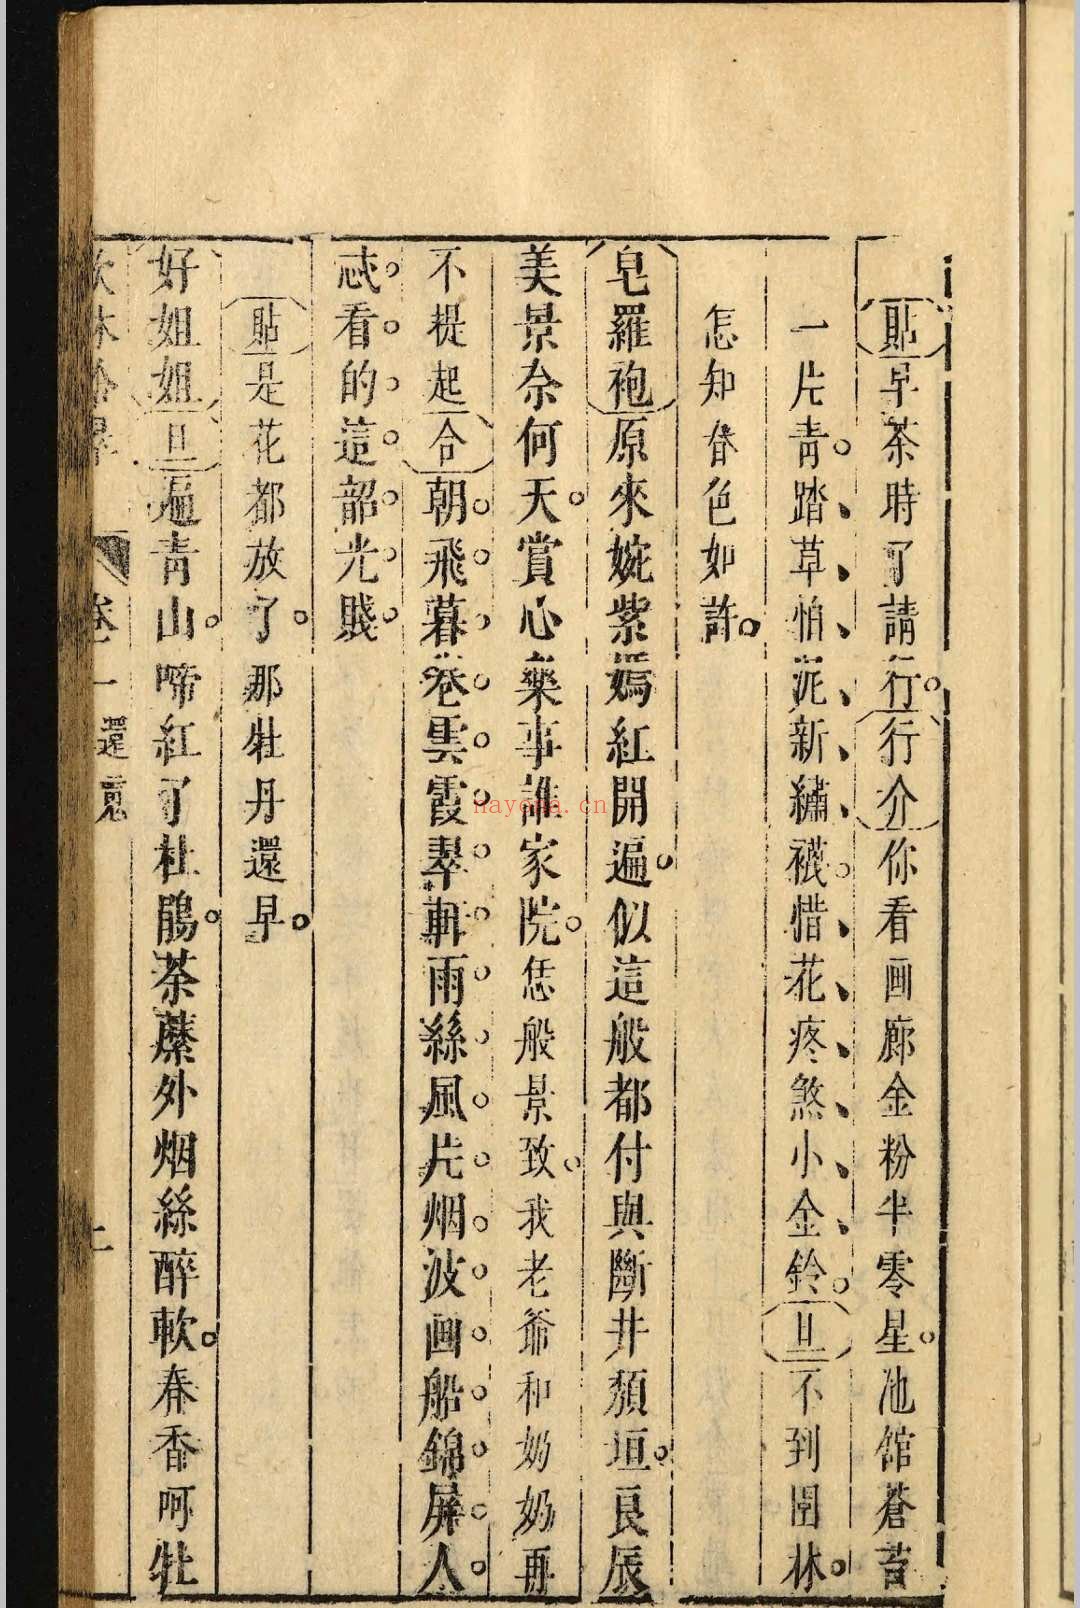 貼早茶時了請行。行介你看画廊金粉半零星。池館蒼苔
一片青。踏、草、怕、泥、新、繡、襪。惜、花、疼、煞、小、金、鈴。旦不到園林。
怎知春色如許。
皂羅袍原來姹紫嫣紅開遍。似這般都付與斷井頹垣。良辰
美景奈何天。賞心樂事誰家院。恁般景致。我老爺和奶奶再
不提起合朝。飛。暮。卷。雲。霞。翠。軒。雨。絲。風。片。烟。波。画。船。錦。屏。人。
忒。看。的。這。韶。光。賤。
貼是花都放了。那牡丹還早。
好姐姐旦遍青山。啼紅了杜鵑。荼蘼外烟絲醉軟。春香呵牡
卷一還魂
nayona.cn